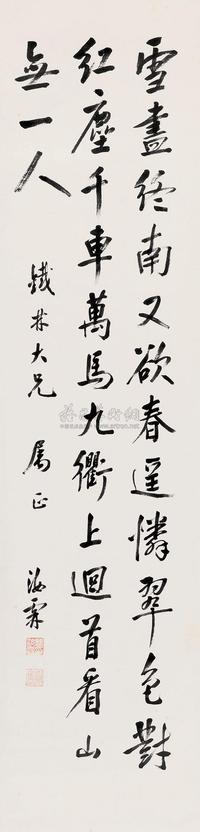 雪盡終南又欲春遥憐翠色對
紅塵千車萬馬九衢上迴首看山
無一人
鐵林大兄 属正
汝霖